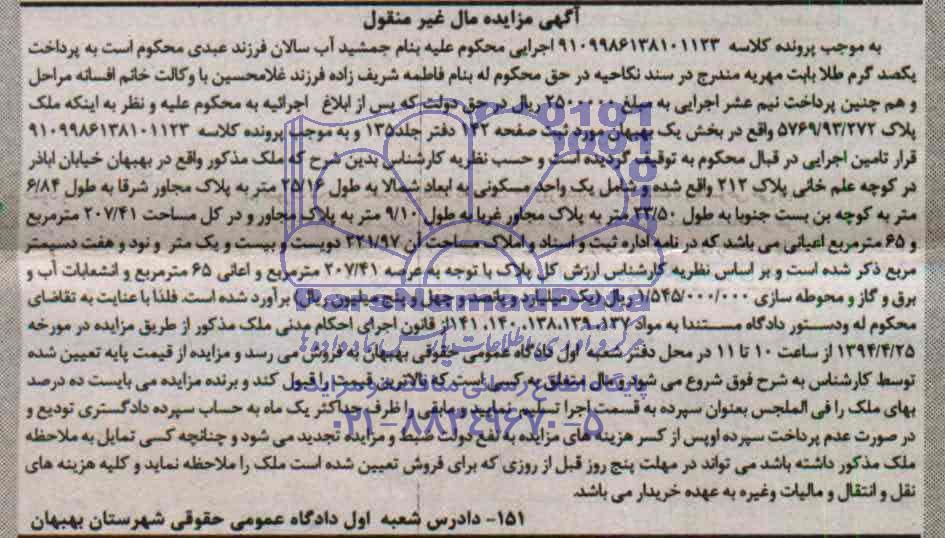 آگهی مزایده مال غیر منقول
به موجب پرونده کلاسه ۹۱۰۹۹۸۶۱۳۸۱۰۱۱۲۳ اجرایی محکوم علیه بنام جمشید آب سالان فرزند عبدی محکوم است به پرداخت
یکصد گرم طلا بابت مهریه مندرج در سند نکاحیه در حق محکوم له بنام فاطمه شریف زاده فرزند غلامحسین با وکالت خانم افسانه مراحل
و هم چنین پرداخت نیم عشر اجرایی به مبلغ ۲۵۰۰۰۰۰ ریال در حق دولت که پس از ابلاغ اجرائیه به محکوم علیه و نظر به اینکه ملک
پلاک ۵۷۶۹/۹۳/۲۷۲ واقع در بخش یک بهبهان مورد ثبت صفحه ۱۴۲ دفتر جلد۱۳۵ و به موجب پرونده کلاسه ۹۱۰۹۹۸۶۱۳۸۱۰۱۱۲۳
قرار تامین اجرایی در قبال محکوم به توقیف گردیده است و حسب نظریه کارشناس بدین شرح که ملک مذکور واقع در بهبهان خیابان اباذر
در کوچه علم خانی پلاک ۲۱۲ واقع شده و شامل یک واحد مسکونی به ابعاد شمالا به طول ۲۵/۱۶ متر به پلاک مجاور شرقا به طول ۶/۸۴
متر به کوچه بن بست جنوبا به طول ۲۳/۵۰ متر به پلاک مجاور غربا به طول ۹/۱۰ متر به پلاک مجاور و در کل مساحت ۲۰۷/۴۱ مترمربع
و ۶۵ مترمربع اعیانی می باشد که در نامه اداره ثبت و اسناد و املاک مساحت آن ۲۲۱/۹۷ دویست و بیست و یک متر و نود و هفت دسیمتر
مربع ذکر شده است و بر اساس نظریه کارشناس ارزش کل پلاک با توجه به عرصه ۲۰۷/۴۱ مترمربع و اعانی ۶۵ مترمربع و انشعابات آب و
برق و گاز و محوطه سازی ۱/۵۴۵/۰۰۰/۰۰۰ ریال (یک میلیارد و پانصد و چهل و پنج میلیون ریال) برآورد شده است. فلذا با عنایت به تقاضای
محکوم له ودستور دادگاه مستندا به مواد ۱۳۷، ۱۳۸،۱۳۹، ۱۴۰، ۱۴۱از قانون اجرای احکام مدنی ملک مذکور از طریق مزایده در مورخه
۱۳۹۴/۴/۲۵ از ساعت ۱۰ تا ۱۱ در محل دفتر شعبه اول دادگاه عمومی حقوقی بهبهان به فروش می رسد و مزایده از قیمت پایه تعیین شده
توسط کارشناس به شرح فوق شروع می شود و مال متعلق به کسی است که بالاترین قیمت را قبول کند و برنده مزایده می بایست ده درصد
بهای ملک را فی الملجس بعنوان سپرده به قسمت اجرا تسلیم نماید و مابقی را ظرف حداکثر یک ماه به حساب سپرده دادگستری تودیع و
در صورت عدم پرداخت سپرده اوپس از کسر هزینه های مزایده به نفع دولت ضبط و مزایده تجدید می شود و چنانچه کسی تمایل به ملاحظه
ملک مذکور داشته باشد می تواند در مهلت پنج روز قبل از روزی که برای فروش تعیین شده است ملک را ملاحظه نماید و کلیه هزینه های
نقل و انتقال و مالیات وغیره به عهده خریدار می باشد.
۱۵۱- دادرس شعبه اول دادگاه عمومی حقوقی شهرستان بهبهان
ParsNamadData
پایگاه اطلاع رسانی مناقصه و مزایده
۰۲۱-۸۸۳۴۹۶۷۰-۵